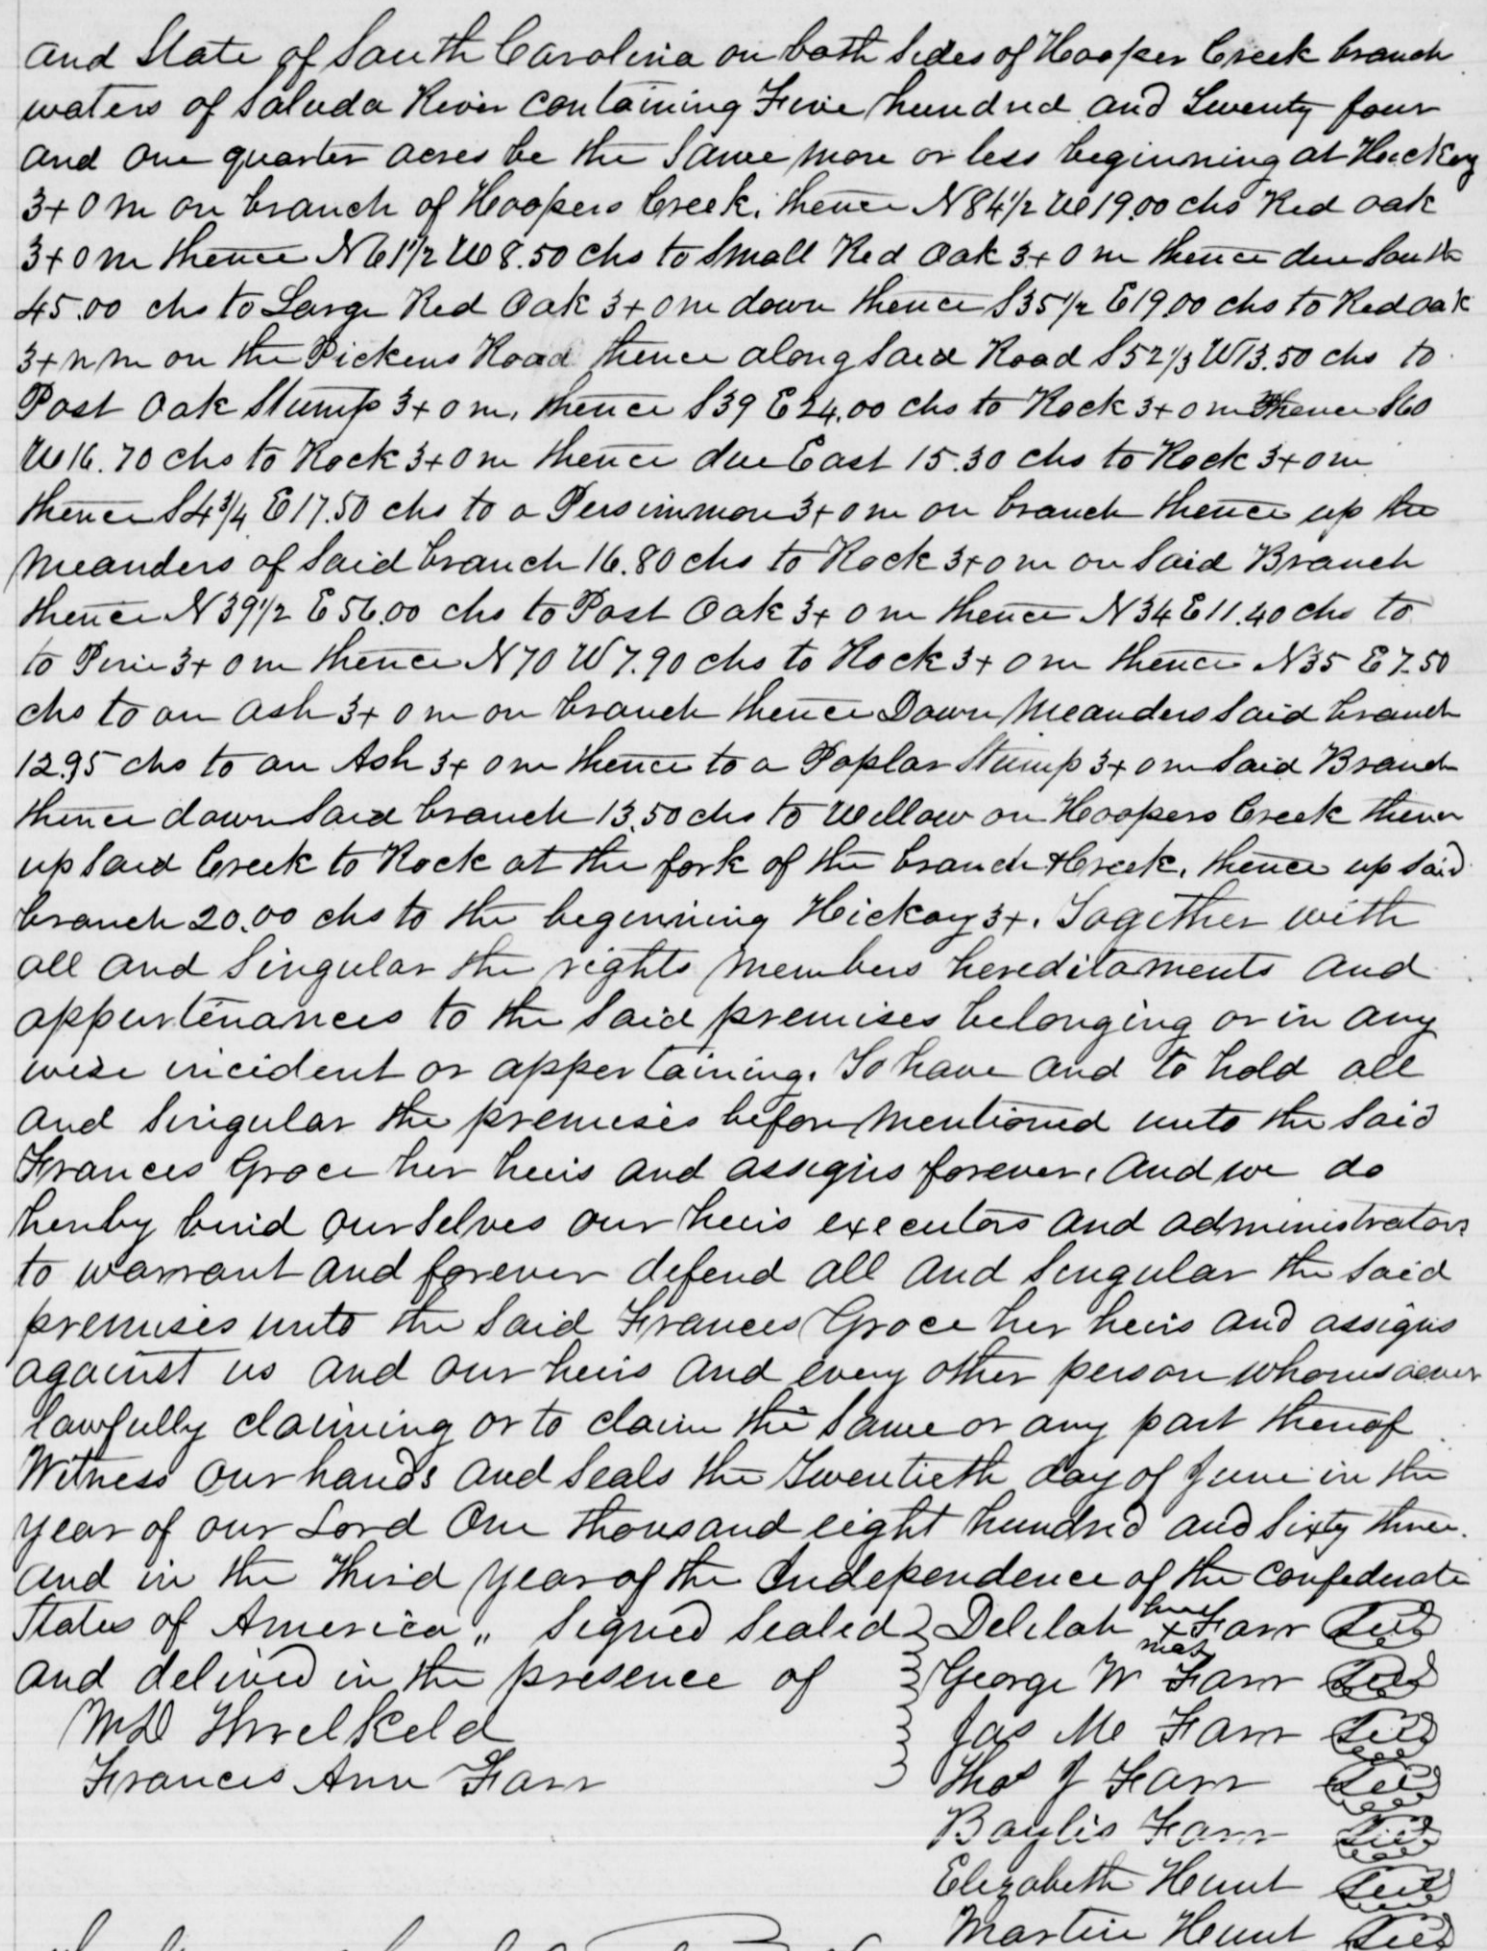 and State of South Carolina on both sides of Hooper Creek branch
waters of Saluda River containing Five hundred and Twenty four
and one quarter acres be the same more or less beginning at Hickory
3+0m on branch of Hoopers Creek, thence N84½ W 19.00 chs Red oak
3+0m thence N61½ W 8.50 chs to small Red Oak 3+0m thence due South
45.00 chs to Large Red Oak 3+0m down thence S35½ E19.00 chs to Red oak
3+n m on the Pickens Road thence along said Road S52⅓ W13.50 chs to
Post Oak Stump 3+0m, thence S39 E24.00 chs to Rock 3+0m thence S60
W16.70 chs to Rock 3+0m thence due East 15.30 chs to Rock 3+0m
thence S4¾ E17.50 chs to a Persimmon 3+0m on branch thence up the
meanders of said branch 16.80 chs to Rock 3+0m on said Branch
thence N39½ E56.00 chs to Post Oak 3+0m thence N34 E11.40 chs to
to Pine 3+0m thence N70 W7.90 chs to Rock 3+0m thence N35 E7.50
chs to an ash 3+0m on branch thence Down Meanders said branch
12.95 chs to an Ash 3+0m thence to a Poplar Stump 3+0m said Branch
thence down said branch 13.50 chs to Willow on Hoopers Creek thence
up said Creek to Rock at the fork of the branch & Creek, thence up said
branch 20.00 chs to the beginning Hickory 3+. Together with
all and singular the rights members hereditaments and
appurtenances to the said premises belonging or in any
wise incident or appertaining. To have and to hold all
and singular the premises before mentioned unto the said
Frances Groce her heirs and assigns forever. And we do
hereby bind ourselves our heirs executors and administrators
to warrant and forever defend all and singular the said
premises unto the said Frances Groce her heirs and assigns
against us and our heirs and every other person whomsoever
lawfully claiming or to claim the same or any part thereof
Witness our hands and seals the Twentieth day of June in the
year of our Lord One thousand eight hundred and Sixty three.
and in the third year of the Independence of the Confederate
States of America„ Signed Sealed Delilah her + mark Farr Seal
and delived in the presence of George W Farr Seal
WD Threlkeld Jas Mc Farr Seal
Frances Ann Farr Thos J Farr Seal
Baylis Farr Seal
Elizabeth Hunt Seal
Martin Hunt Seal